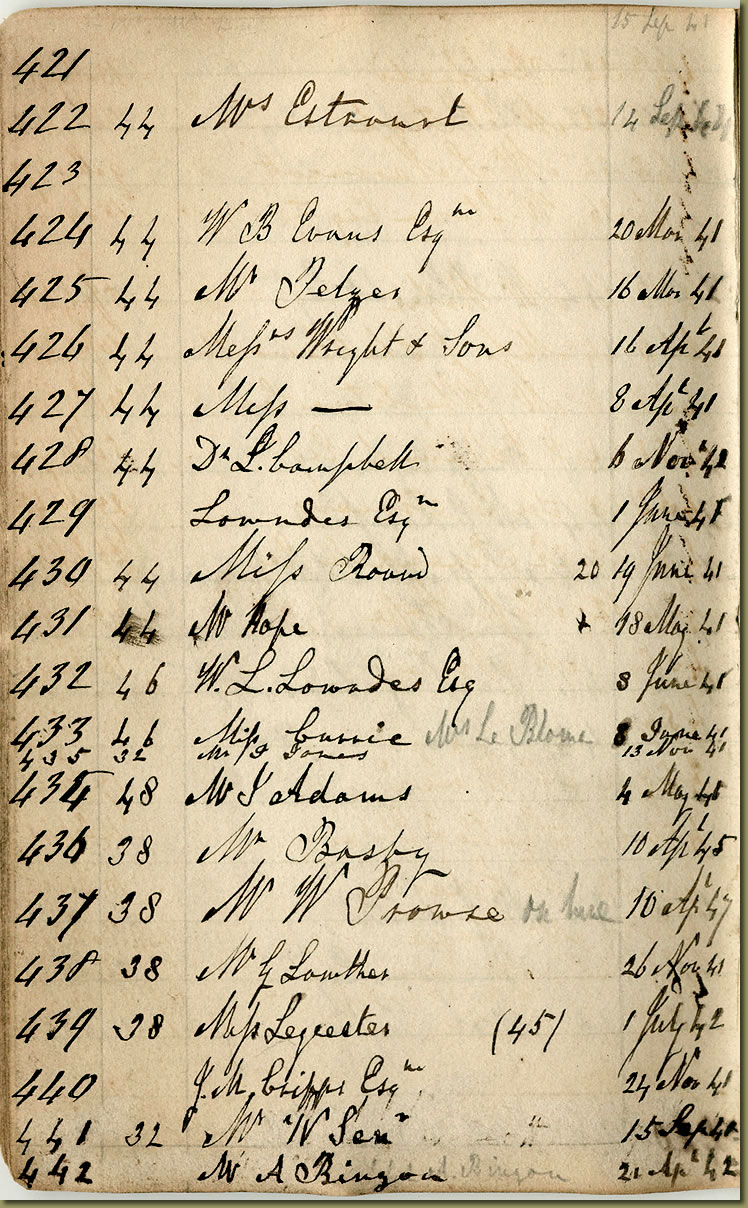 15 Sep 41
421
422 44 Mrs Estcourt 14 Sep
423
424 44 W B Evans Esqre 20 Mar 41
425 44 Mr Pelzer 16 Mar 41
426 44 Messrs Wright & Sons 16 Apl 41
427 44 Miss — 8 Apl 41
428 44 Dr Campbell 6 Novr 42
429 Lowndes Esqr 1 June 41
430 44 Miss Round 20 19 June 41
431 44 Mr Hope 18 May 41
432 46 W. L. Lowndes Esq 8 June 41
433 46 Miss Currie Mrs Le Blome 8 June 41
435 32 Mr J Jones 13 Nov 41
434 48 Mr J Adams 4 May
436 38 Mr Busby 10 Apl 45
437 38 Mr W Prowse on hire 10 Apl 47
438 38 Mr G Lowther 26 Nov 41
439 38 Miss Leycester (45) 1 July 42
440 J. M. Cripps Esqre 24 Nov 41
441 32 Mr W Senr 15 Sep
442 Mr A Binyon A. Binyon 21 Apl 42